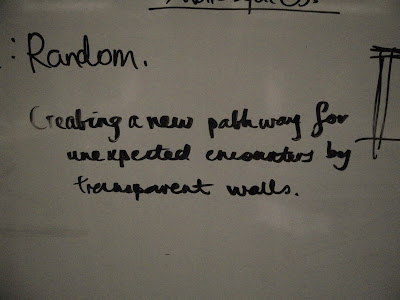 : Random.
Creating a new pathway for
unexpected encounters by
transparent walls.